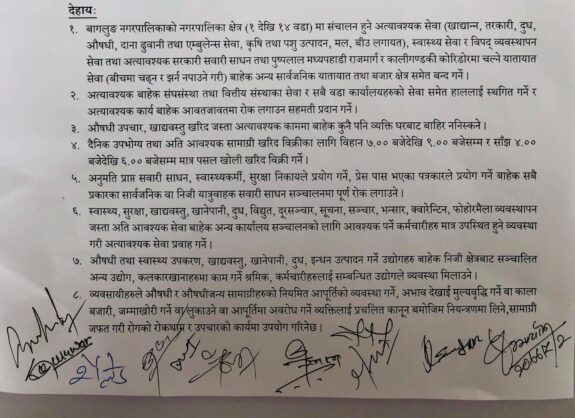 देहायः
१. बागलुङ नगरपालिकाको नगरपालिका क्षेत्र (१ देखि १४ वडा) मा संचालन हुने अत्यावश्यक सेवा (खाद्यान्न, तरकारी, दुध,
औषधी, दाना ढुवानी तथा एम्बुलेन्स सेवा, कृषि तथा पशु उत्पादन, मल, बीउ लगायत), स्वास्थ्य सेवा र विपद् व्यवस्थापन
सेवा तथा अत्यावश्यक सरकारी सवारी साधन तथा पुष्पलाल मध्यपहाडी राजमार्ग र कालीगण्डकी कोरिडोरमा चल्ने यातायात
सेवा (बीचमा चढ्न र झर्न नपाउने गरी) बाहेक अन्य सार्वजनिक यातायात तथा बजार क्षेत्र समेत बन्द गर्ने।
२. अत्यावश्यक बाहेक संघसंस्था तथा वित्तीय संस्थाका सेवा र सबै वडा कार्यालयहरुको सेवा समेत हाललाई स्थगित गर्ने र
अत्यावश्यक कार्य बाहेक आवतजावतमा रोक लगाउन सहमती प्रदान गर्ने।
३. औषधी उपचार, खाद्यवस्तु खरिद जस्ता अत्यावश्यक काममा बाहेक कुनै पनि व्यक्ति घरबाट बाहिर ननिस्कने।
४. दैनिक उपभोग्य तथा अति आवश्यक सामाग्री खरिद विक्रीका लागि विहान ७.०० बजेदेखि ९.०० बजेसम्म र साँझ ४.००
बजेदेखि ६.०० बजेसम्म मात्र पसल खोली खरिद विक्री गर्ने।
५. अनुमति प्राप्त सवारी साधन, स्वास्थ्यकर्मी, सुरक्षा निकायले प्रयोग गर्ने, प्रेस पास भएका पत्रकारले प्रयोग गर्ने बाहेक सबै
प्रकारका सार्वजनिक वा निजी यात्रुवाहक सवारी साधन सञ्चालनमा पूर्ण रोक लगाउने।
६. स्वास्थ्य, सुरक्षा, खाद्यवस्तु, खानेपानी, दुध, विद्युत, दूरसञ्चार, सूचना, सञ्चार, भन्सार, क्वारेन्टिन, फोहोरमैला व्यवस्थापन
जस्ता अति आवश्यक सेवा बाहेक अन्य कार्यालय सञ्चालनको लागि आवश्यक पर्ने कर्मचारीहरु मात्र उपस्थित हुने व्यवस्था
गरी अत्यावश्यक सेवा प्रवाह गर्ने।
७. औषधी तथा स्वास्थ्य उपकरण, खाद्यवस्तु, खानेपानी, दुध, इन्धन उत्पादन गर्ने उद्योगहरु बाहेक निजी क्षेत्रबाट सञ्चालित
अन्य उद्योग, कलकारखानाहरुमा काम गर्ने श्रमिक, कर्मचारीहरुलाई सम्बन्धित उद्योगले व्यवस्था मिलाउने।
८. व्यवसायीहरुले औषधी र औषधीजन्य सामाग्रीहरुको नियमित आपूर्तिको व्यवस्था गर्ने, अभाव देखाई मुल्यवृद्धि गर्ने वा काला
बजारी, जम्माखोरी गर्ने वा लुकाउने वा आपूर्तिमा अवरोध गर्ने व्यक्तिलाई प्रचलित कानून बमोजिम नियन्त्रणमा लिने,सामाग्री
जफत गरी रोगको रोकथाम र उपचारको कार्यमा उपयोग गरिनेछ।